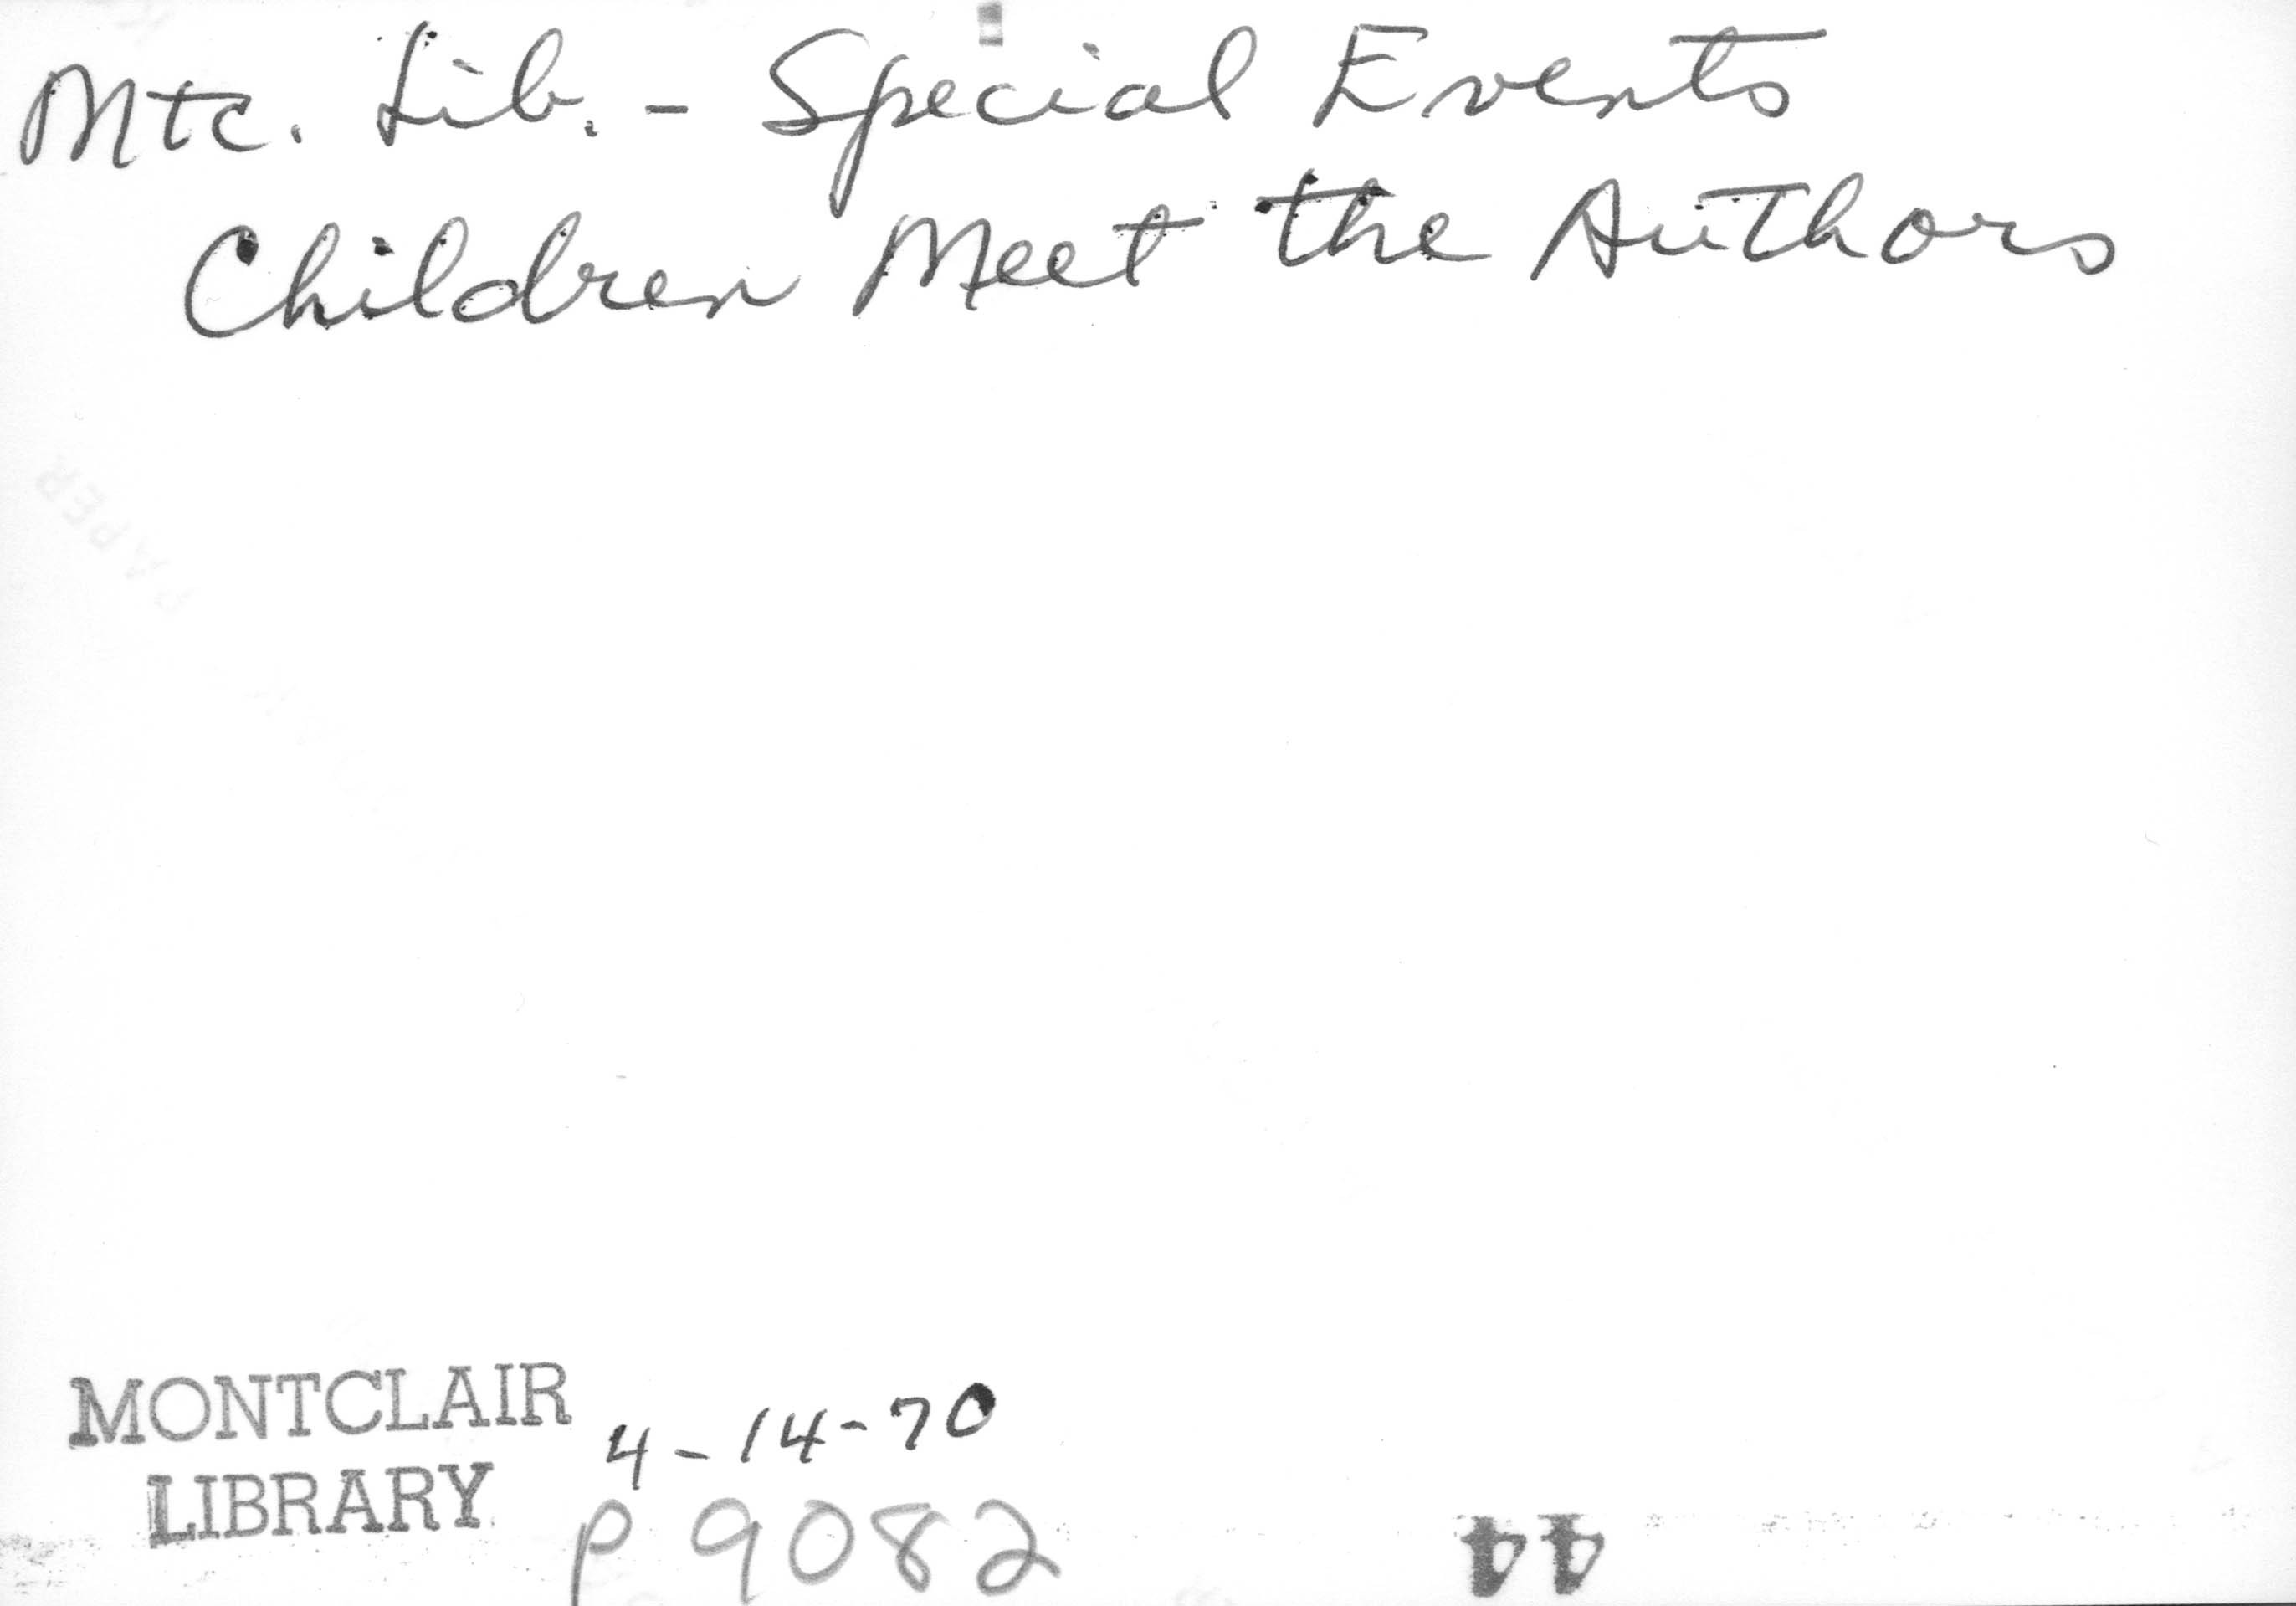 Mtc. Lib. - Special Events
Children Meet the Authors
PAPER
MONTCLAIR
LIBRARY
4-14-70
P 9082
44